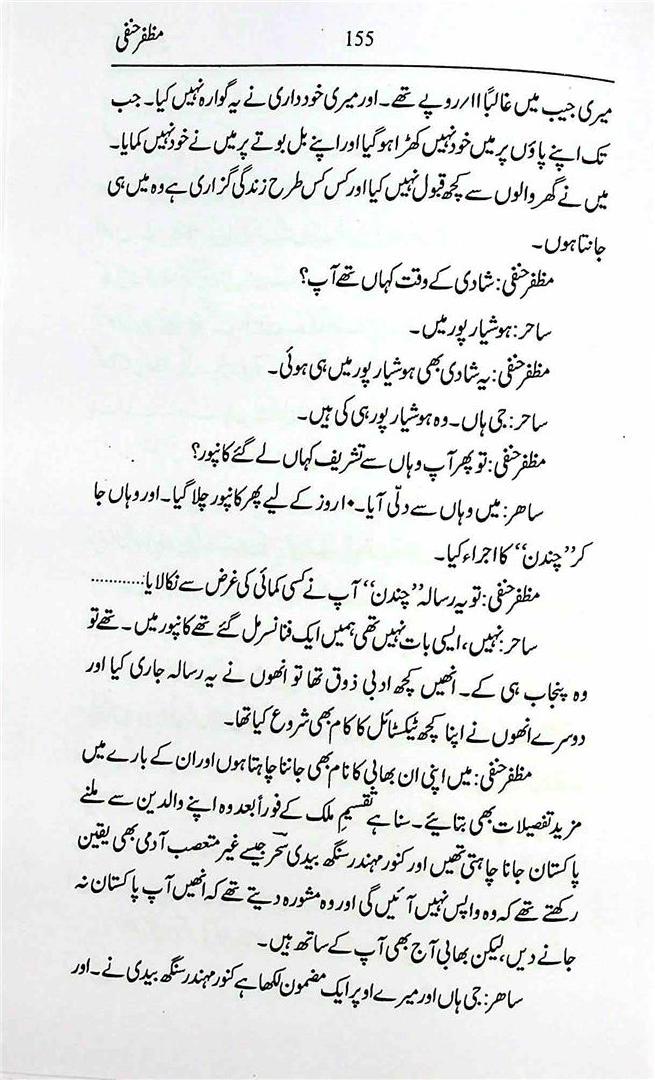 155 مظفر حنفی
میری جیب میں غالباً ۱۱/روپے تھے۔ اور میری خودداری نے یہ گوارہ نہیں کیا۔ جب
تک اپنے پاؤں پر میں خود نہیں کھڑا ہوگیا اور اپنے بل بوتے پر میں نے خود نہیں کمایا۔
میں نے گھر والوں سے کچھ قبول نہیں کیا اور کس کس طرح زندگی گزاری ہے وہ میں ہی
جانتا ہوں۔
مظفر حنفی: شادی کے وقت کہاں تھے آپ؟
ساحر: ہوشیار پور میں۔
مظفر حنفی: یہ شادی بھی ہوشیار پور میں ہی ہوئی۔
ساحر: جی ہاں۔ وہ ہوشیار پور ہی کی ہیں۔
مظفر حنفی: تو پھر آپ وہاں سے تشریف کہاں لے گئے کانپور؟
ساھر: میں وہاں سے دلّی آیا۔ ۱۰ روز کے لیے پھر کانپور چلا گیا۔ اور وہاں جا
کر ”چندن“ کا اجراء کیا۔
مظفر حنفی: تو یہ رسالہ ”چندن“ آپ نے کسی کمائی کی غرض سے نکالا یا............
ساحر: نہیں، ایسی بات نہیں تھی ہمیں ایک فنانسر مل گئے تھے کانپور میں۔ تھے تو
وہ پنجاب ہی کے۔ انھیں کچھ ادبی ذوق تھا تو انھوں نے یہ رسالہ جاری کیا اور
دوسرے انھوں نے اپنا کچھ ٹیکسٹائل کا کام بھی شروع کیا تھا۔
مظفر حنفی: میں اپنی ان بھابی کا نام بھی جاننا چاہتا ہوں اور ان کے بارے میں
مزید تفصیلات بھی بتائیے۔ سنا ہے تقسیمِ ملک کے فوراً بعد وہ اپنے والدین سے ملنے
پاکستان جانا چاہتی تھیں اور کنور مہندر سنگھ بیدی سحرؔ جیسے غیر متعصب آدمی بھی یقین
رکھتے تھے کہ وہ واپس نہیں آئیں گی اور وہ مشورہ دیتے تھے کہ انھیں آپ پاکستان نہ
جانے دیں، لیکن بھابی آج بھی آپ کے ساتھ ہیں۔
ساھر: جی ہاں اور میرے اوپر ایک مضمون لکھا ہے کنور مہندر سنگھ بیدی نے۔ اور